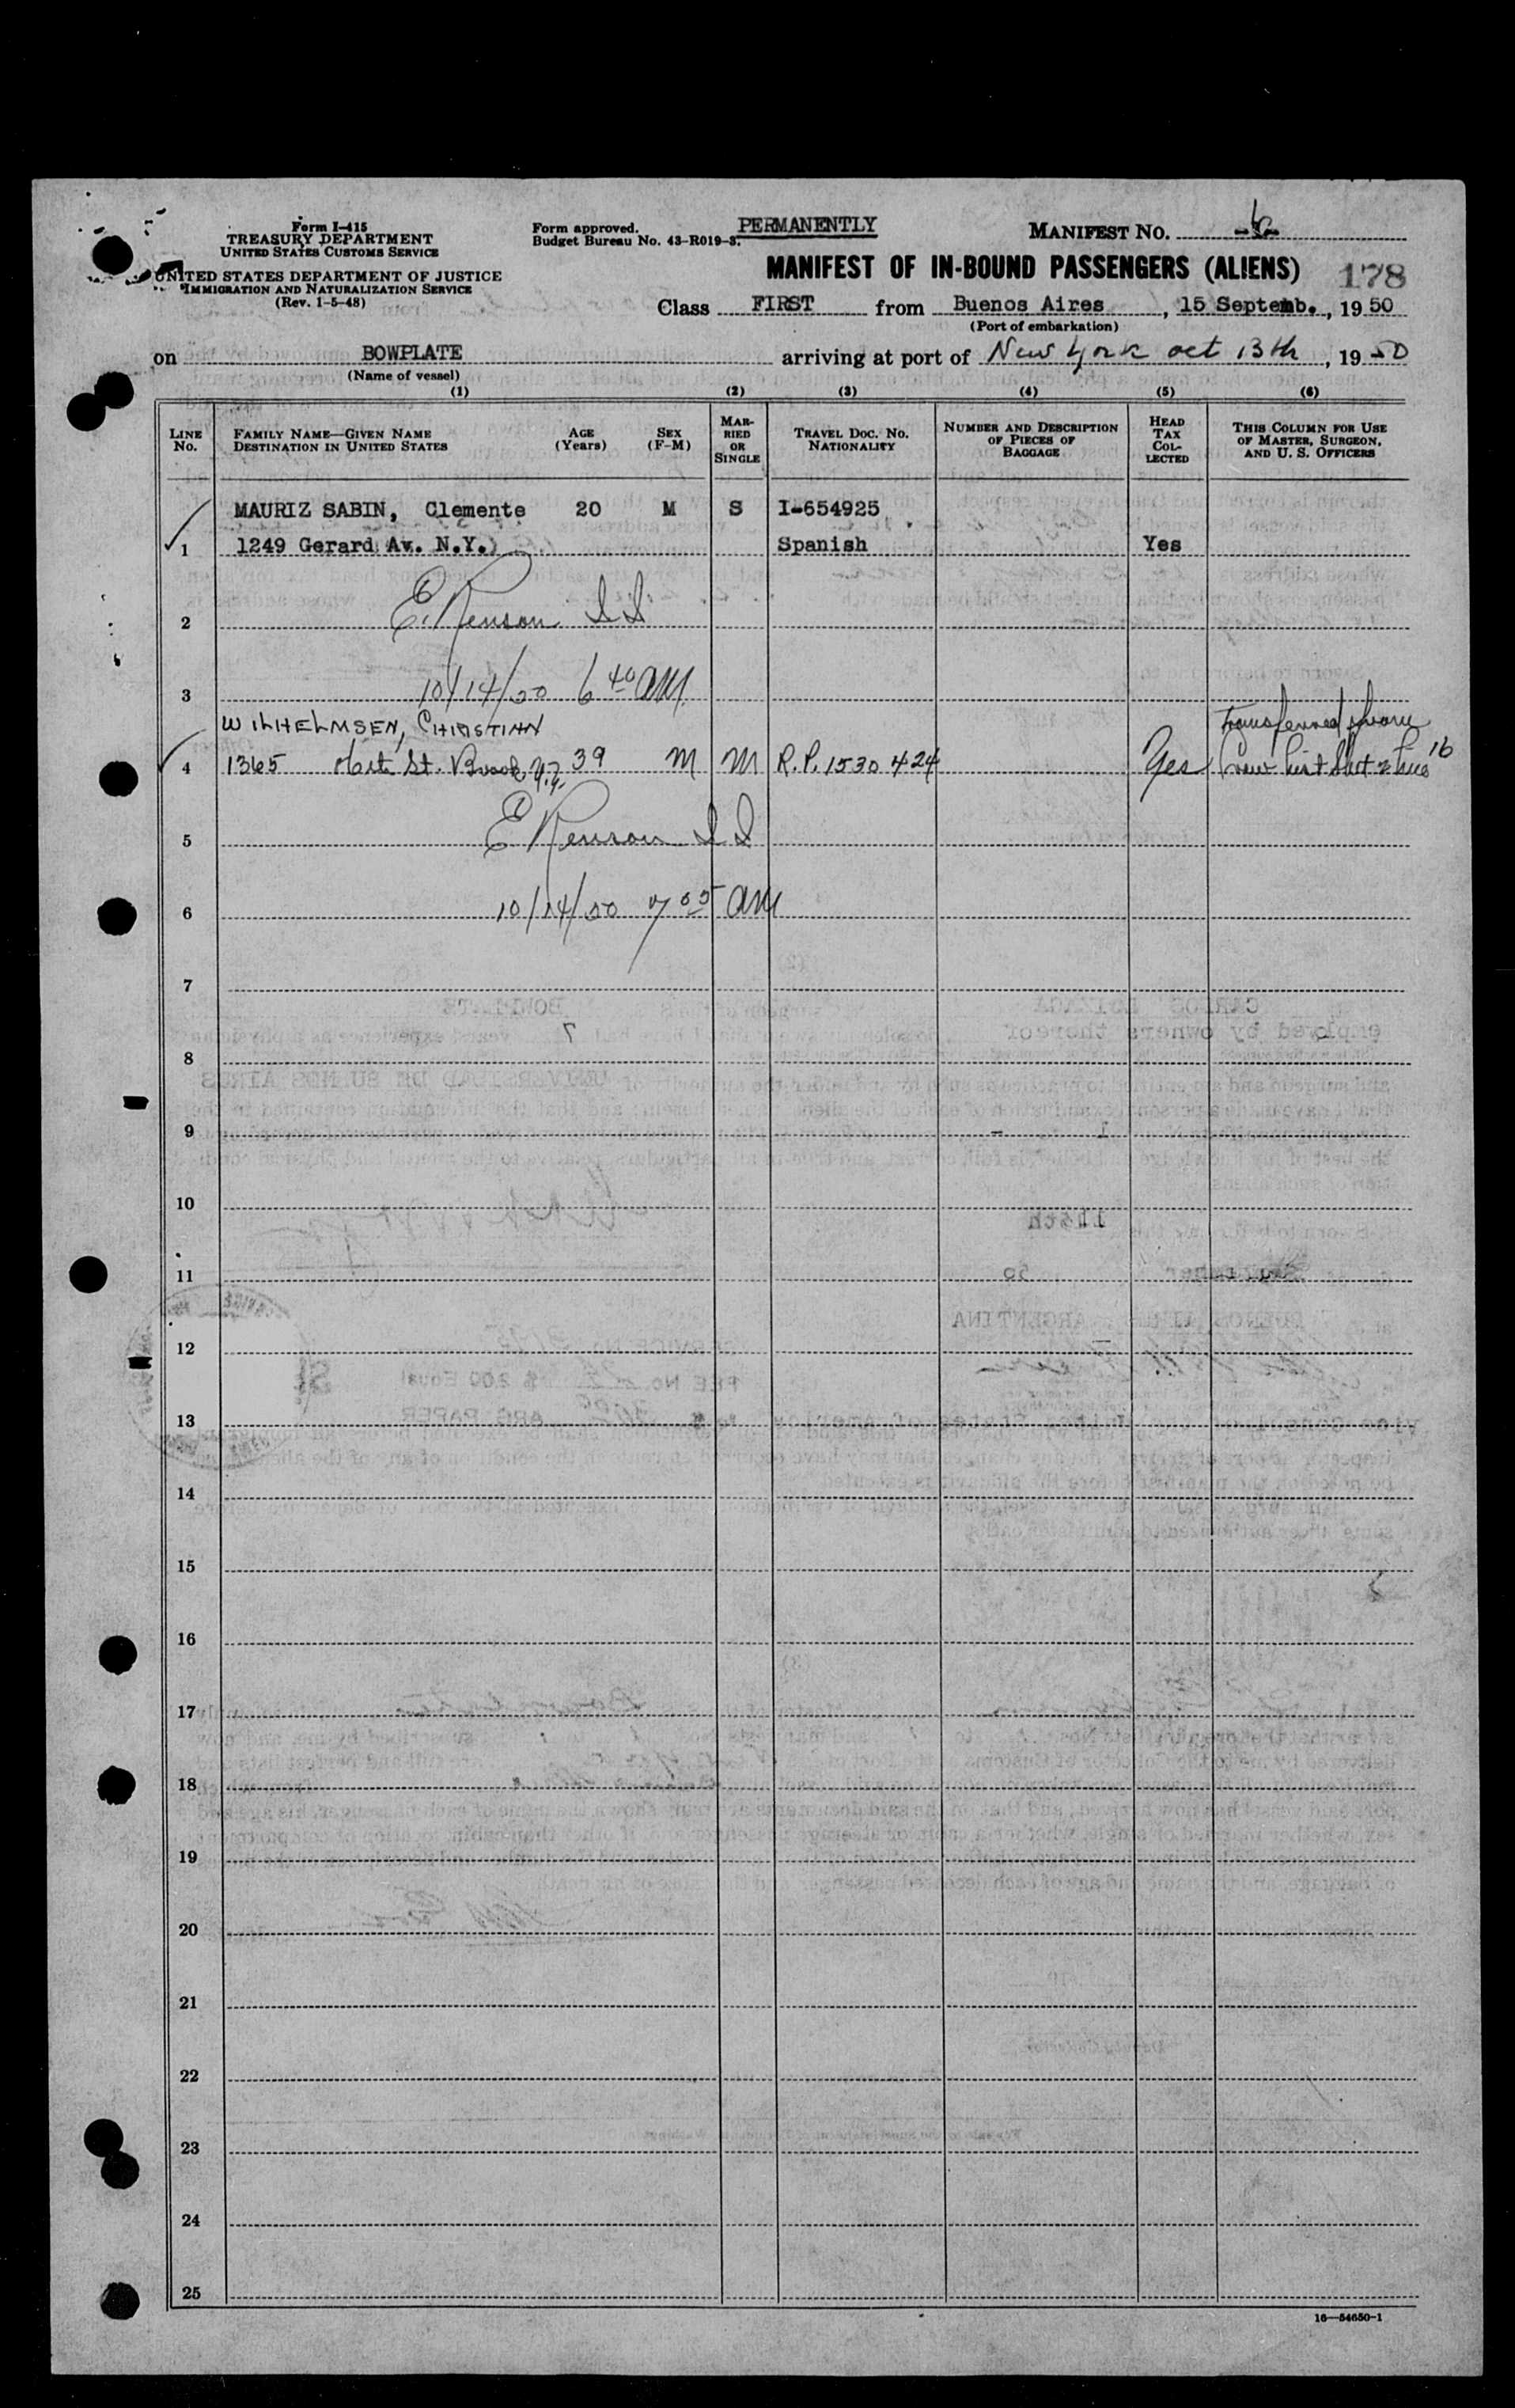 Form I-415
TREASURY DEPARTMENT
UNITED STATES CUSTOMS SERVICE
UNITED STATES DEPARTMENT OF JUSTICE
IMMIGRATION AND NATURALIZATION SERVICE
(Rev. 1-5-48)
Form approved.
Budget Bureau No. 43-R019-3.
PERMANENTLY
MANIFEST NO.
MANIFEST OF IN-BOUND PASSENGERS (ALIENS) 178
Class FIRST from Buenos Aires, 15 Septemb., 19 50
(Port of embarkation)
on BOWPLATE arriving at port of New York oct 13th, 19 50
(Name of vessel)
(1) (2) (3) (4) (5) (6)
LINE No.
FAMILY NAME—GIVEN NAME
DESTINATION IN UNITED STATES
AGE (Years)
SEX (F-M)
MARRIED OR SINGLE
TRAVEL DOC. NO.
NATIONALITY
NUMBER AND DESCRIPTION OF PIECES OF BAGGAGE
HEAD TAX COLLECTED
THIS COLUMN FOR USE OF MASTER, SURGEON, AND U. S. OFFICERS
MAURIZ SABIN, Clemente 20 M S I-654925
1 1249 Gerard Av. N.Y. Spanish Yes
2 E. Renson I I
3 10/14/50 6 40 AM
WILHELMSEN, CHRISTIAN transferred from
4 1365 St. N.Y. 39 M M R.P. 1530424 Yes Crew List Sheet 2 line 16
5 E Renson I I
6 10/14/50 7 05 AM
7
8
9
10
11
12
13
14
15
16
17
18
19
20
21
22
23
24
25
16—54650-1